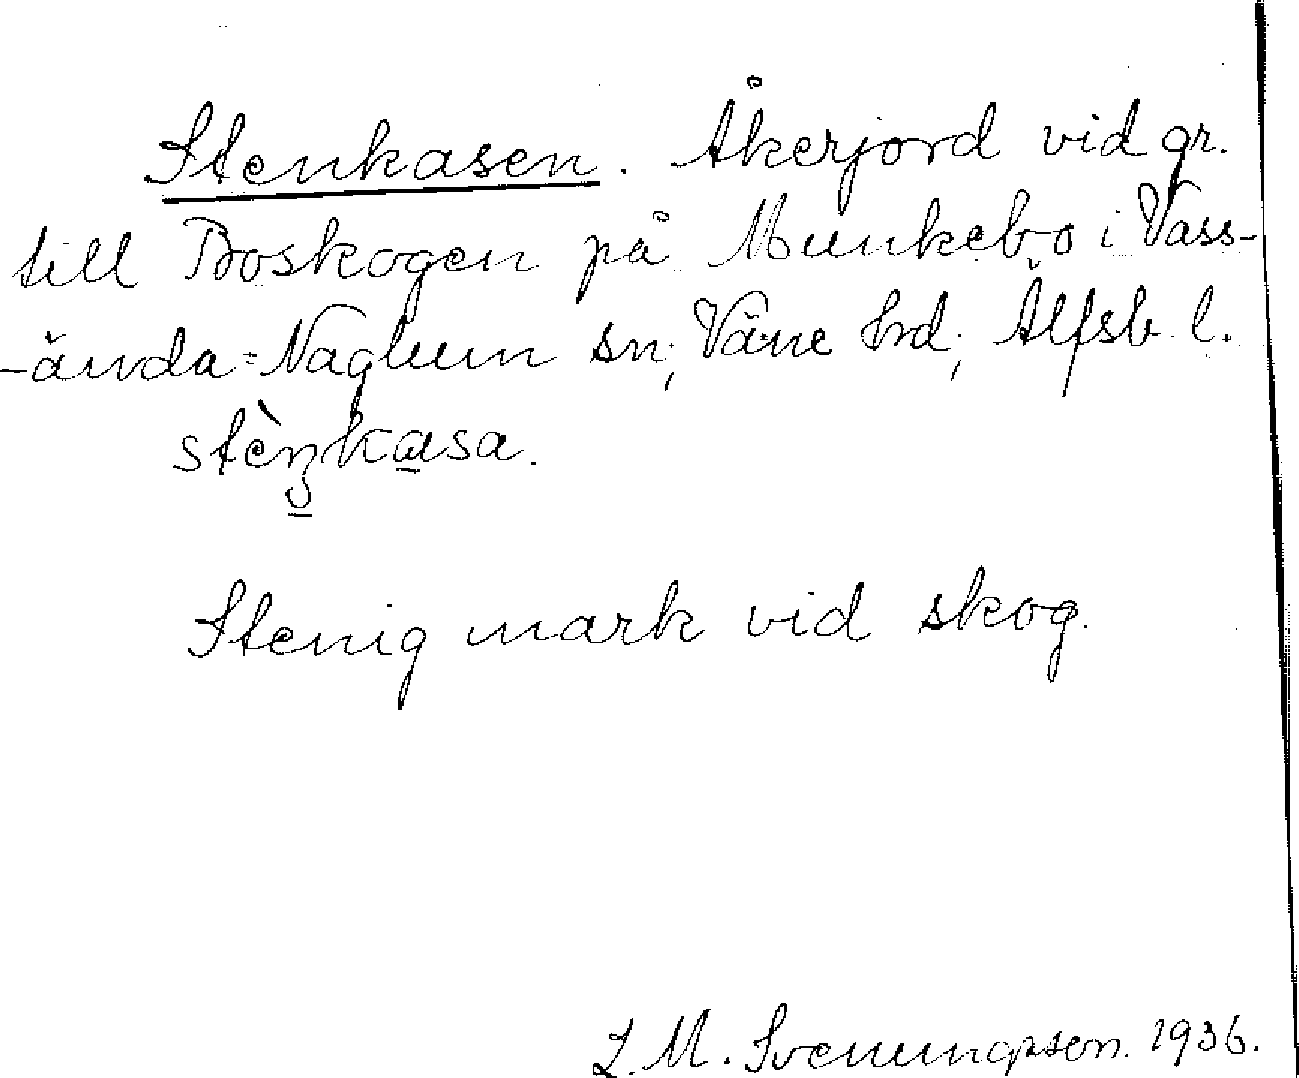 Stenkasen. Åkerjord vid gr.
till Boskogen på Munkebo i Väss-
-ända-Naglum sn, Väne hrd, Älfsb. l.
stèŋkasa.
Stenig mark vid skog.
L. M. Svenungsson. 1936.